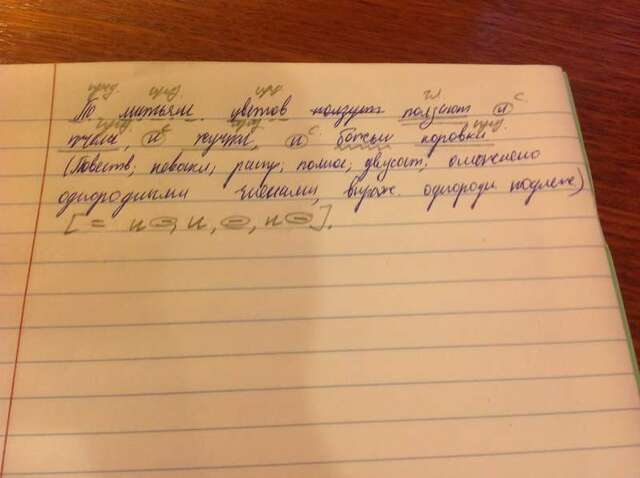 сущ. сущ. гл. с.
По листьям цветов ползут ползают и
пчелы, и жучки, и божьи коровки
(Повеств; невоскл; распр; полное; двусост; осложнено
однородными членами, выраж. однородн подлеж)
[= и О, и, О, и О].